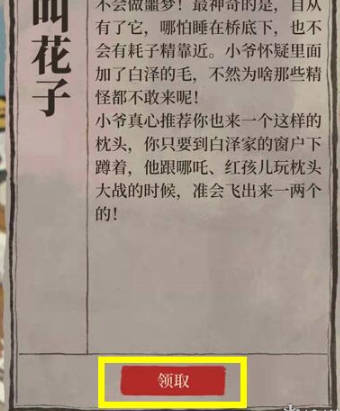 叫花子
不会做噩梦！最神奇的是，自从
有了它，哪怕睡在桥底下，也不
会有耗子精靠近。小爷怀疑里面
加了白泽的毛，不然为啥那些精
怪都不敢来呢！
小爷真心推荐你也来一个这样的
枕头，你只要到白泽家的窗户下
蹲着，他跟哪吒、红孩儿玩枕头
大战的时候，准会飞出来一两个
的！
领取